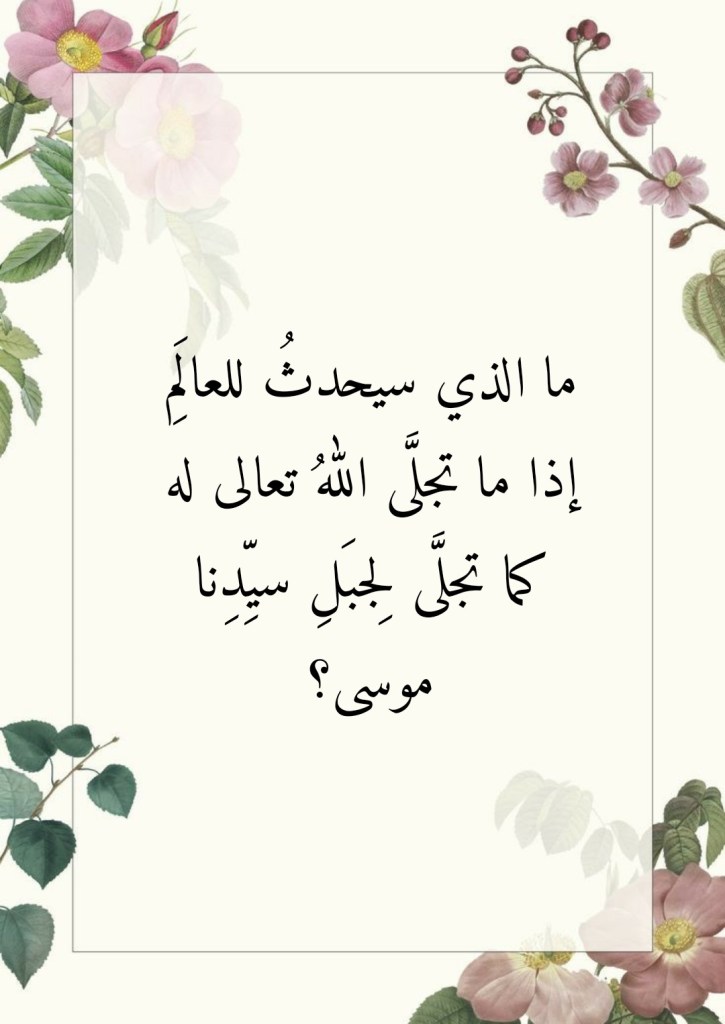 ما الذي سيحدثُ للعالَمِ
إذا ما تجلَّى اللهُ تعالى له
كما تجلَّى لِجبَلِ سيِّدِنا
موسى؟